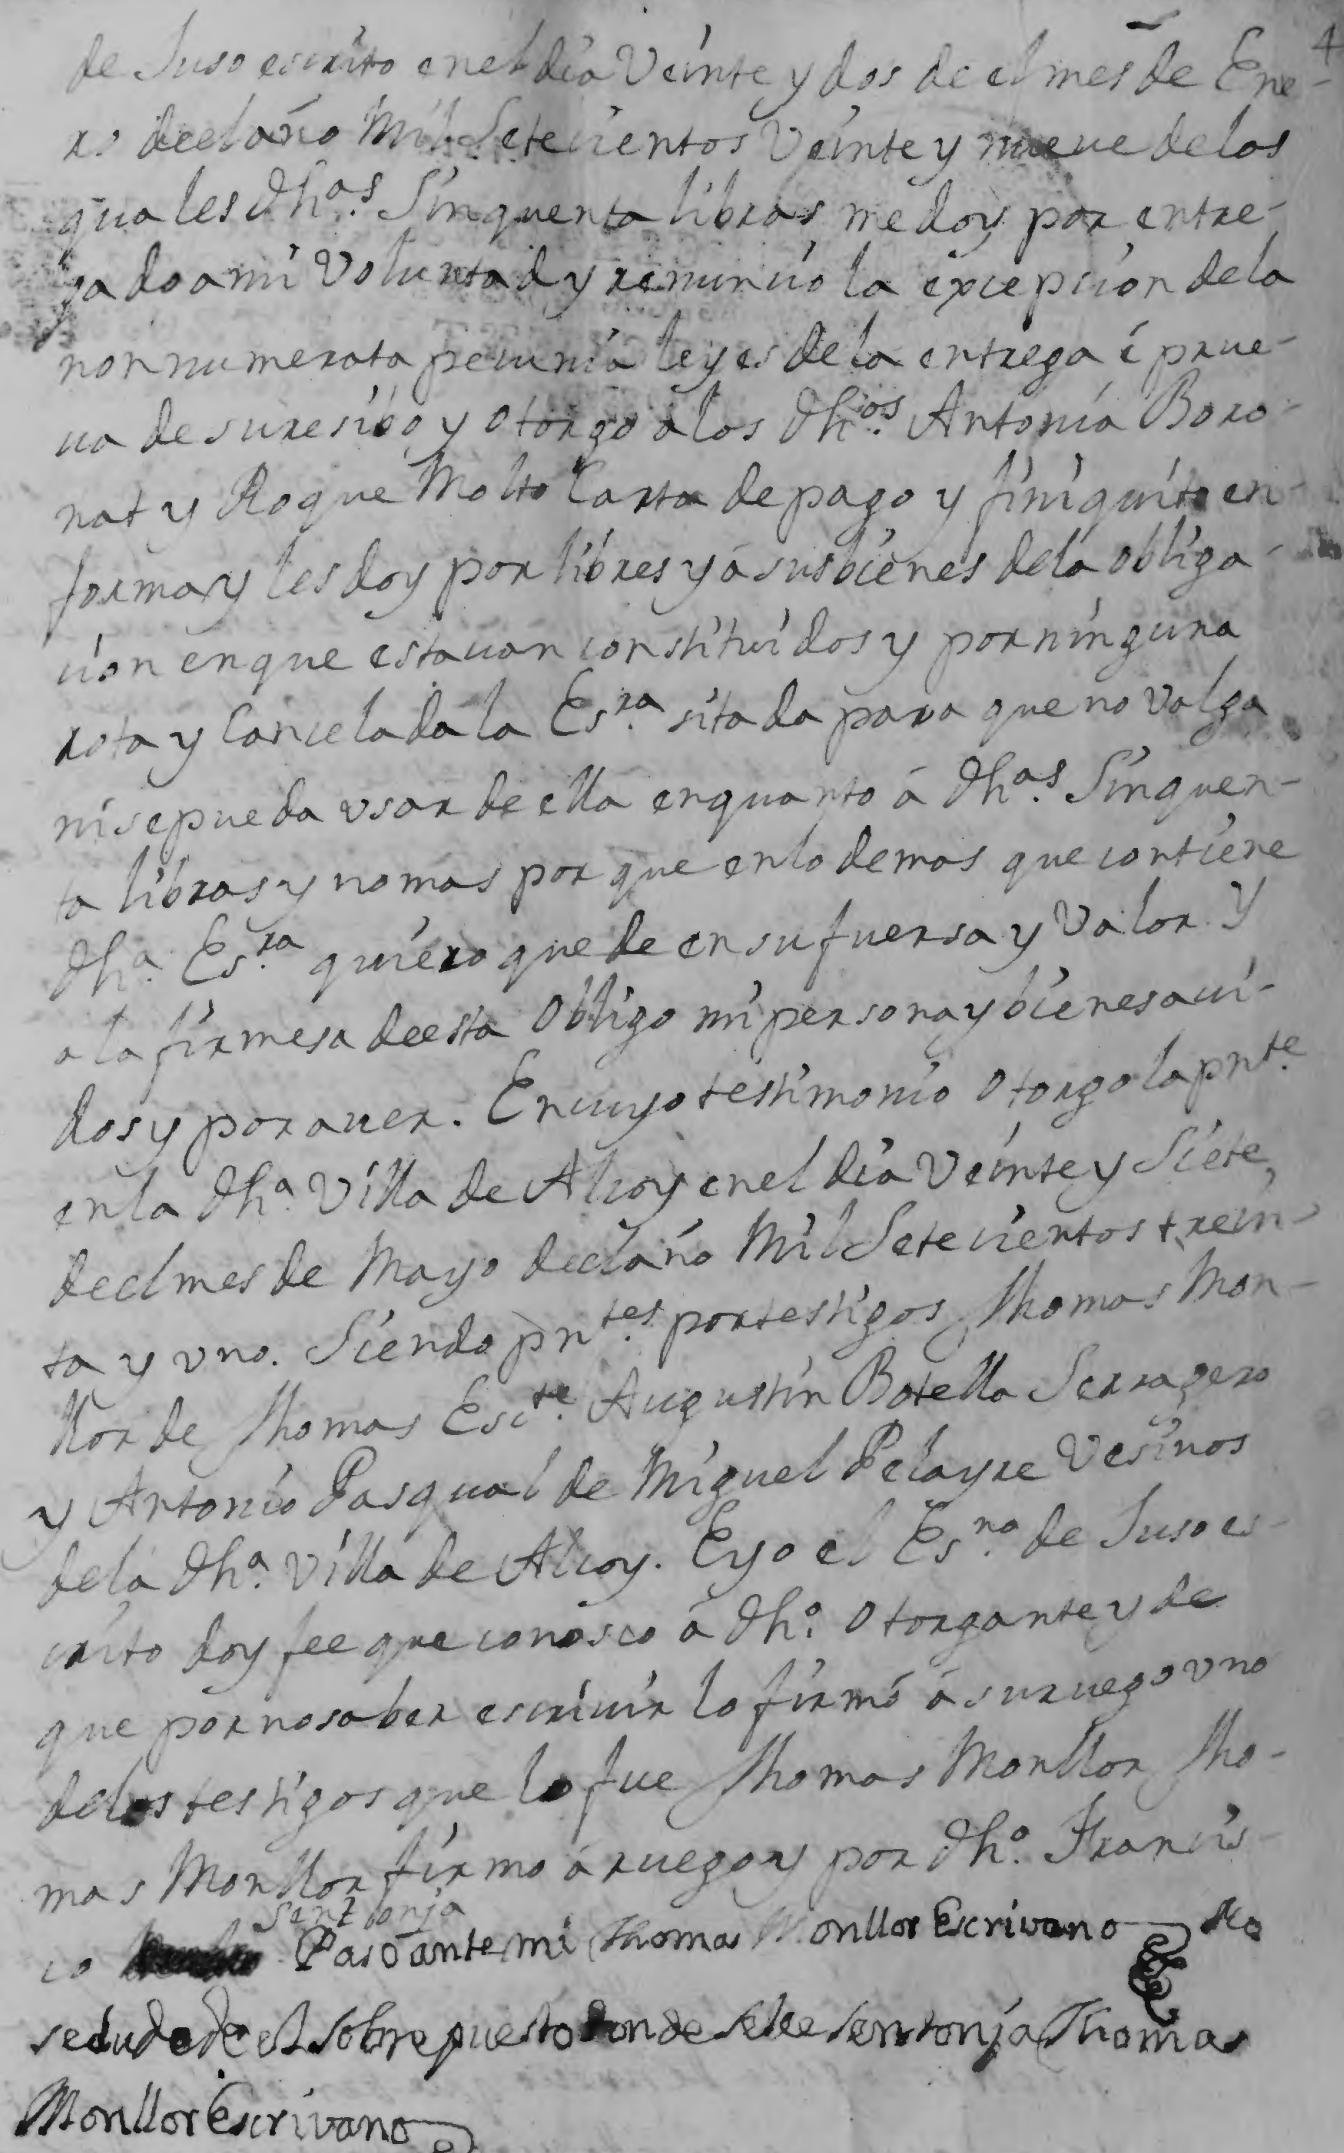 4
de Suso escrito en el dia Veinte y dos de el mes de Ene-
ro de el año Mil Setecientos Veinte y nueve de los
quales dhas. Sinquenta libras me doy por entre-
gado a mi Voluntad y renuncio la excepcion de la
non numerata pecunia leyes de la entrega é prue-
ua de su resibo y otorgo a los dhos. Antonia Boro-
nat y Roque Molto Carta de pago y finiquito en
forma y les doy por libres y á sus bienes de la obliga-
cion en que estauan constituidos y por ninguna
rota y Cancelada la Esra. sitada para que no Valga
ni se pueda usar de ella en quanto á dhas. Sinquen-
ta libras y no mas por que en lo demas que contiene
dha. Esra. quiero quede en su fuersa y Valor. Y
a la firmesa de esta Obligo mi persona y bienes aui-
dos y por auer. En cuyo testimonio otorgo la pnte.
en la dha. Villa de Alcoy en el dia Veinte y Siete
de el mes de Mayo de el año Mil Setecientos trein-
ta y uno. Siendo pntes. por testigos Thomas Mon-
llor de Thomas Escte. Augustin Botella Serragero
y Antonio Pasqual de Miguel Pelayre Vesinos
de la dha. Villa de Alcoy. E yo el Esno. de Suso es-
crito doy fee que conosco á dho. otorgante y de
que por no saber escriuir lo firmó á su ruego uno
de los testigos que lo fue Thomas Monllor Tho-
mas Monllor firmo á ruego y por dho. Francis-
Sentonja
co Pasó ante mi Thomas Monllor Escrivano No
se dude de el sobre puesto donde se lee Sentonja Thomas
Monllor Escrivano